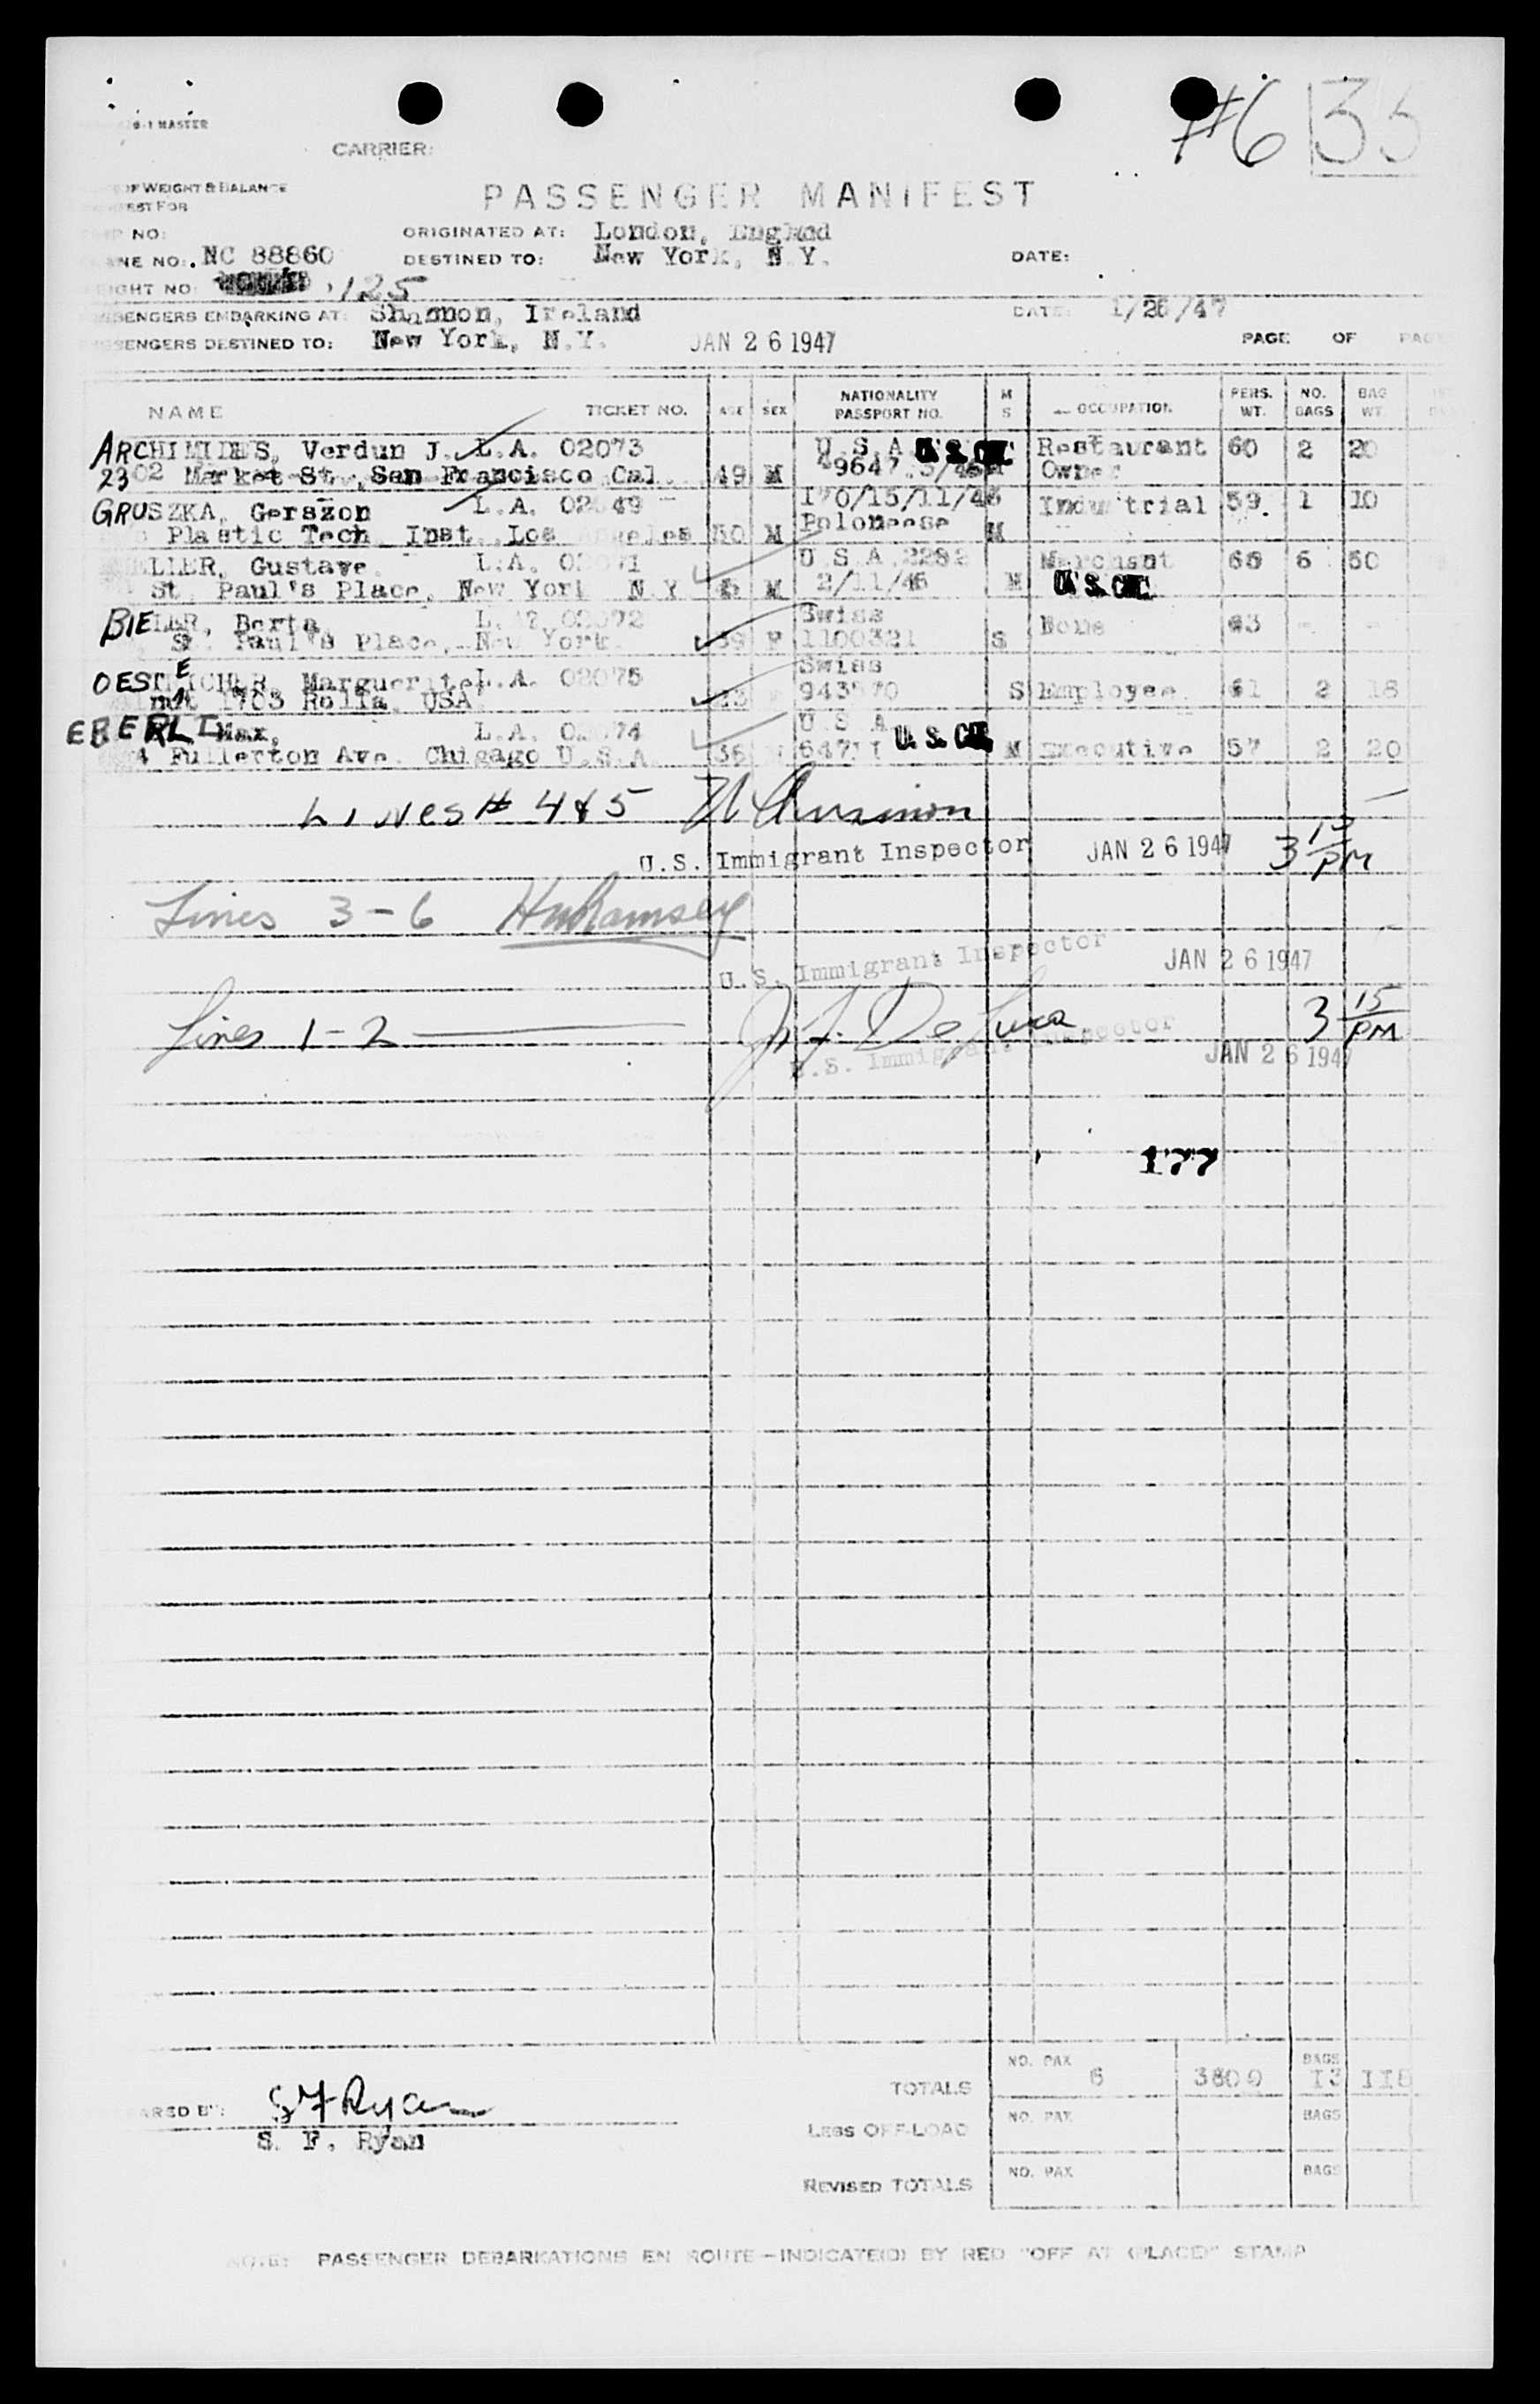 #6 35
-1 MASTER
CARRIER:
OF WEIGHT & BALANCE
PASSENGER MANIFEST
EST FOR
NO:
ORIGINATED AT: London, England
NE NO: NC 88860
DESTINED TO: New York, N.Y.
DATE:
IGHT NO: 125
SENGERS EMBARKING AT: Shannon, Ireland
DATE: 1/26/47
SENGERS DESTINED TO: New York, N.Y.
JAN 26 1947
PAGE OF PAG
NAME TICKET NO. AGE SEX NATIONALITY PASSPORT NO. M S OCCUPATION PERS. WT. NO. BAGS BAG WT.
ARCHIMIDES, Verdun J. L.A. 02073 U.S.A U.S. CIT. Restaurant 60 2 20
2302 Market St., San Francisco Cal. 49 M Owner
GRUSZKA, Gerszon L.A. 02 49 Industrial 59. 1 10
Plastic Tech Inst. Los Angeles 50 M Poloneese M
LLER, Gustave L.A. U.S.A. 2282 Merchant 6 50
St. Paul's Place, New York N.Y M 2/11/46 M U.S. CIT.
BIELER, Berta L.A. 02072 Swiss None 63 - -
St. Paul's Place, New York. 39 F 1100321 S
OESTEICHER, Marguerite L.A. 02075 Swiss
1703 Rolla, USA 943570 S Employee 61 2 18
EBERLI Max, L.A. 02074 U.S.A
4 Fullerton Ave. Chigago U.S.A. 36 U.S. CIT. M Executive 57 2 20
LINES # 4 & 5
U.S. Immigrant Inspector JAN 26 1947 3 15 PM
Lines 3-6 HW Ramsey
U.S. Immigrant Inspector JAN 26 1947
Lines 1-2 De Luca 3 15 PM
U.S. Immigrant Inspector JAN 26 1947
177
TOTALS NO. PAX 6 BAGS 13
ARED BY: S F Ryan
S. F. Ryan
LESS OFF-LOAD NO. PAX BAGS
REVISED TOTALS NO. PAX BAGS
NOTE: PASSENGER DEBARKATIONS EN ROUTE - INDICATE(D) BY RED "OFF AT (PLACE)" STAMP